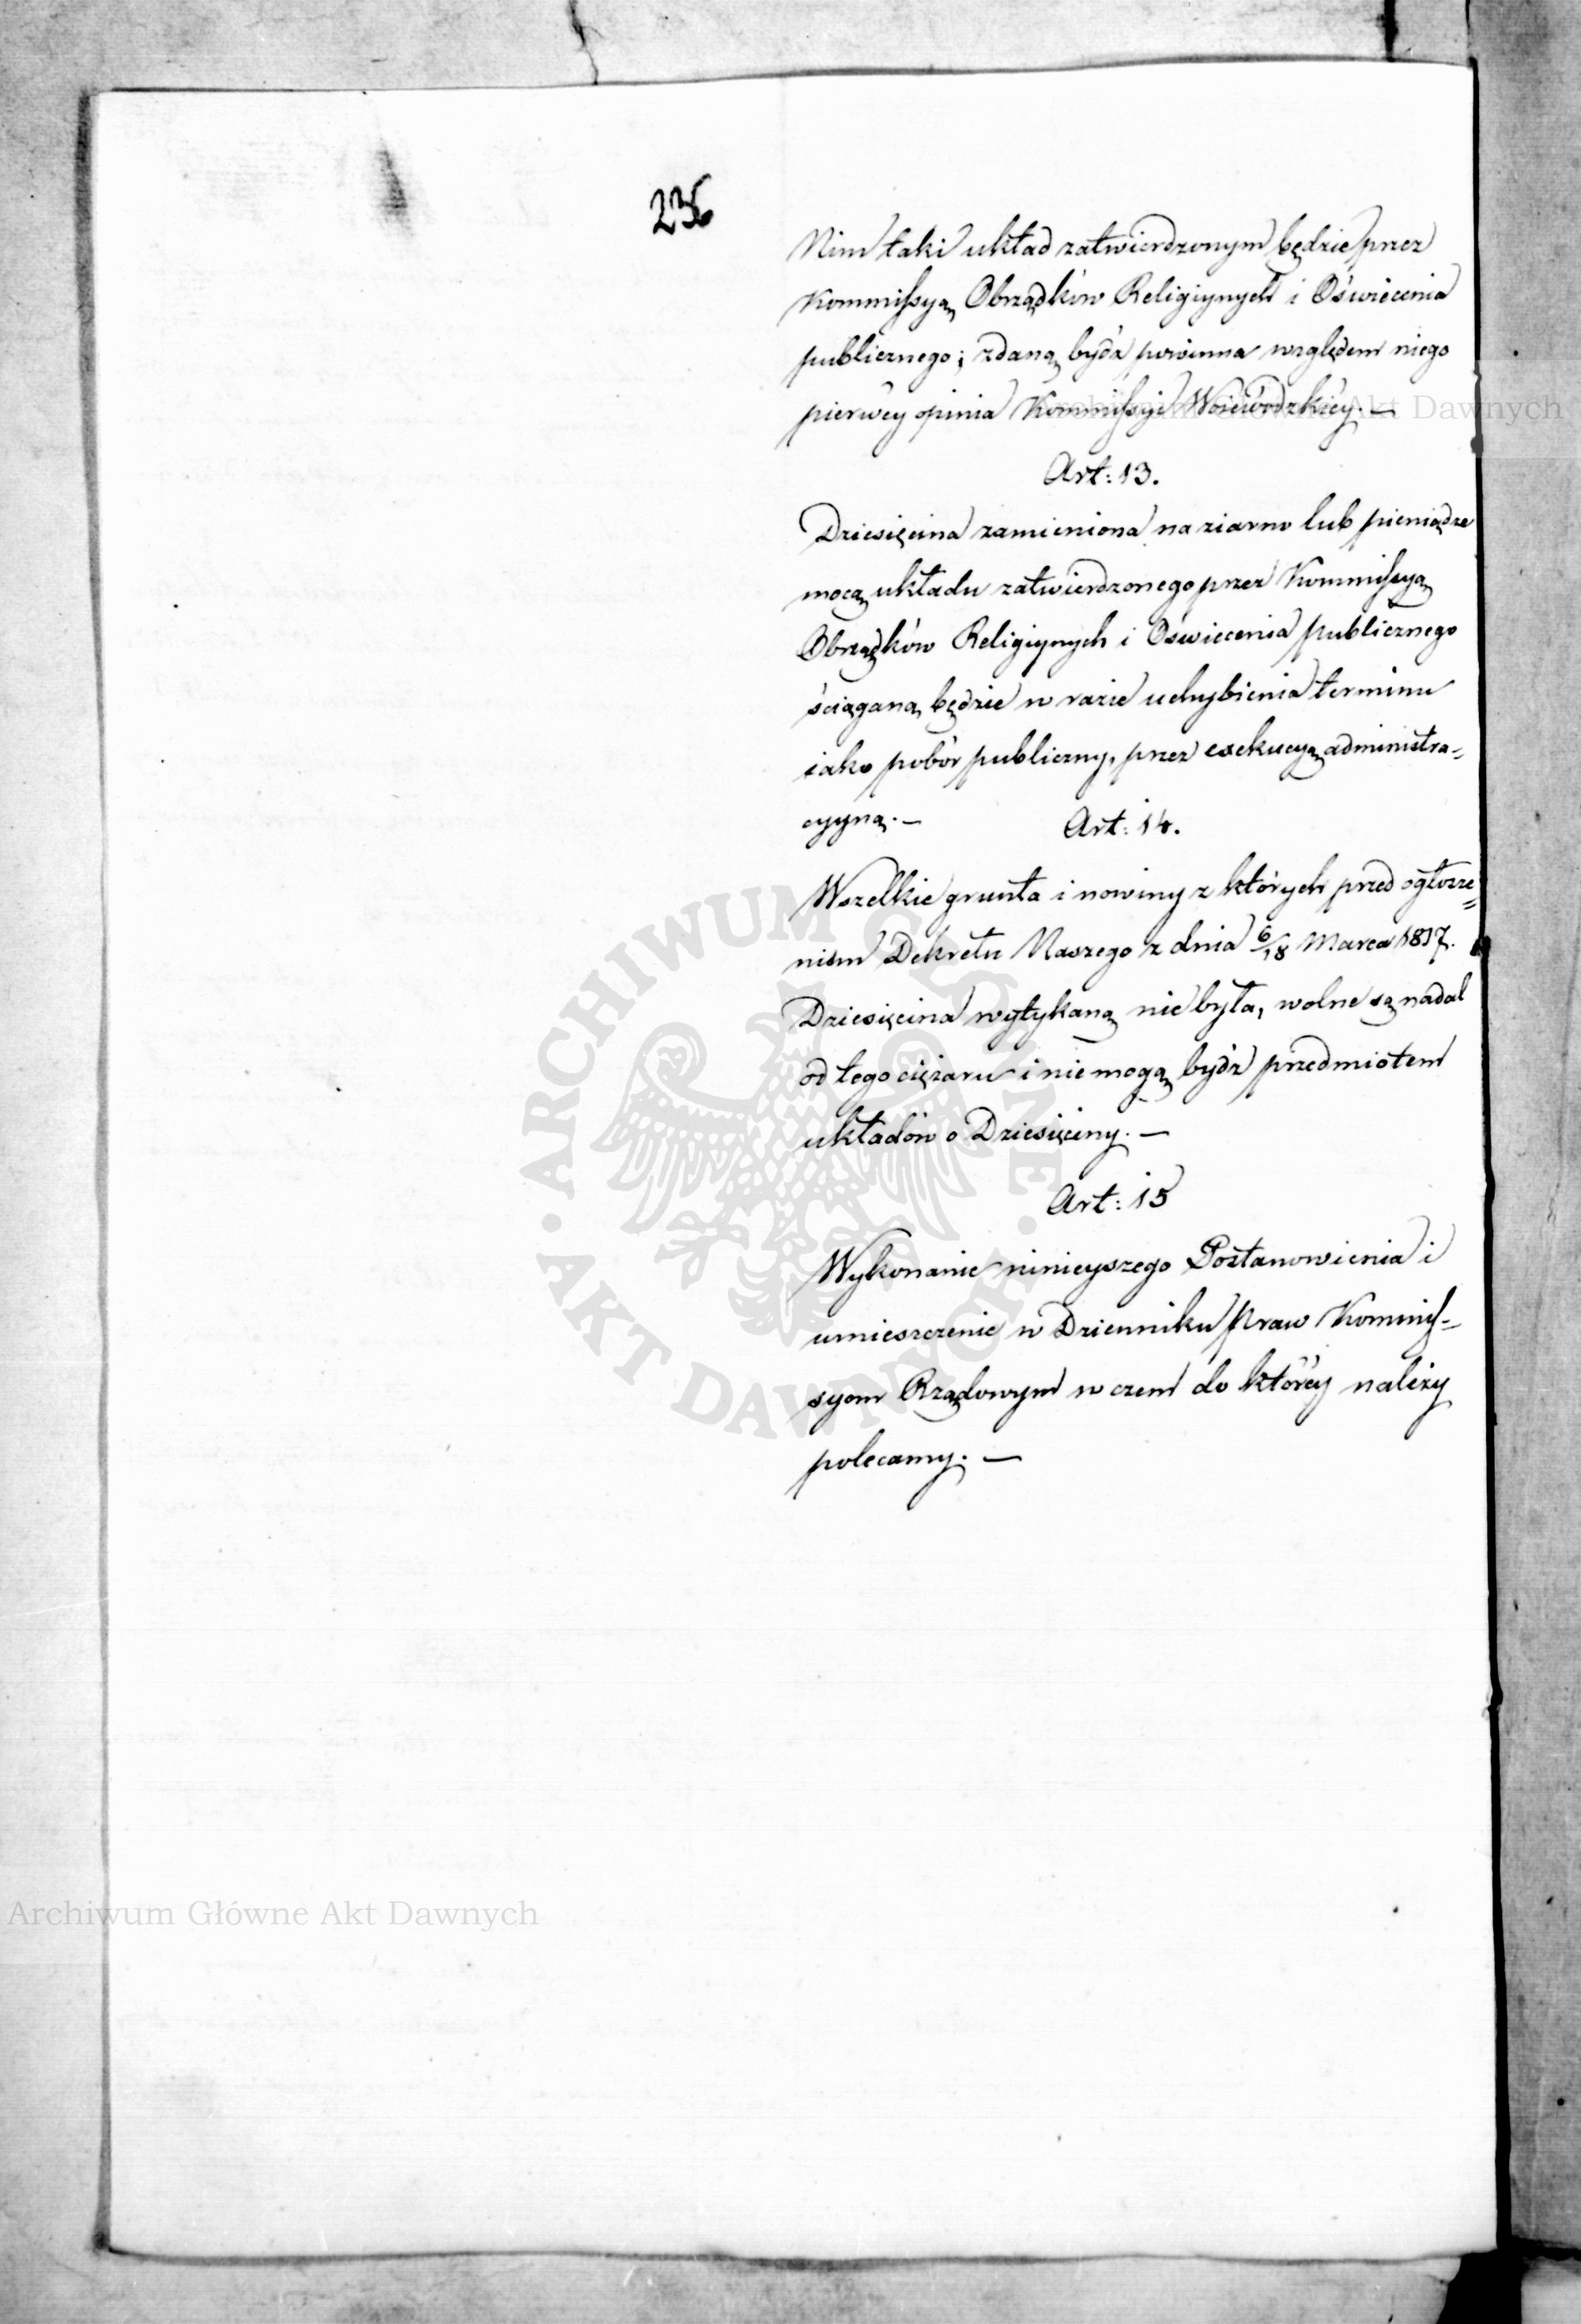 236
Nim taki układ zatwierdzonym będzie przez
Kommissyą Obrządków Religiynych i Oświecenia
publicznego; zdaną bydź powinna względem niego
pierwéy opinia Kommissyi Woiewódzkiéy. —
Art: 13.
Dziesięcina zamieniona na ziarno lub pieniądze
mocą układu zatwierdzonego przez Kommissyą
Obrządków Religiynych i Oświecenia publicznego
ściąganą będzie w razie uchybienia terminu
iako pobór publiczny, przez exekucyą administra=
cyyną. —
Art: 14.
Wszelkie grunta i nowiny z których przed ogłosze=
niem Dekretu Naszego z dnia 6/18 Marca 1817.
Dziesięcina wytykaną nie była, wolne są nadal
od tego ciężaru i nie mogą bydź przedmiotem
układów o Dziesięciny. —
Art: 15
Wykonanie ninieyszego Postanowienia i
umieszczenie w Dzienniku Praw Kommis=
syom Rządowym w czem do któréy należy
polecamy. —
Archiwum Główne Akt Dawnych
Archiwum Główne Akt Dawnych
ARCHIWUM GŁÓWNE · AKT DAWNYCH ·